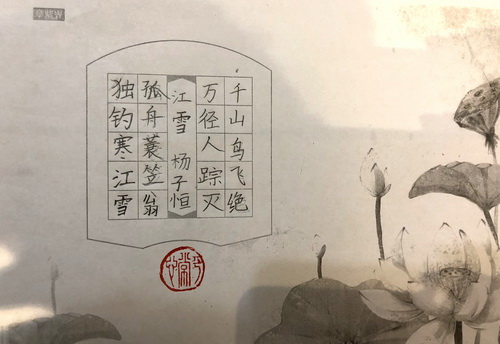 千山鸟飞绝
万径人踪灭
江雪 杨子恒
孤舟蓑笠翁
独钓寒江雪